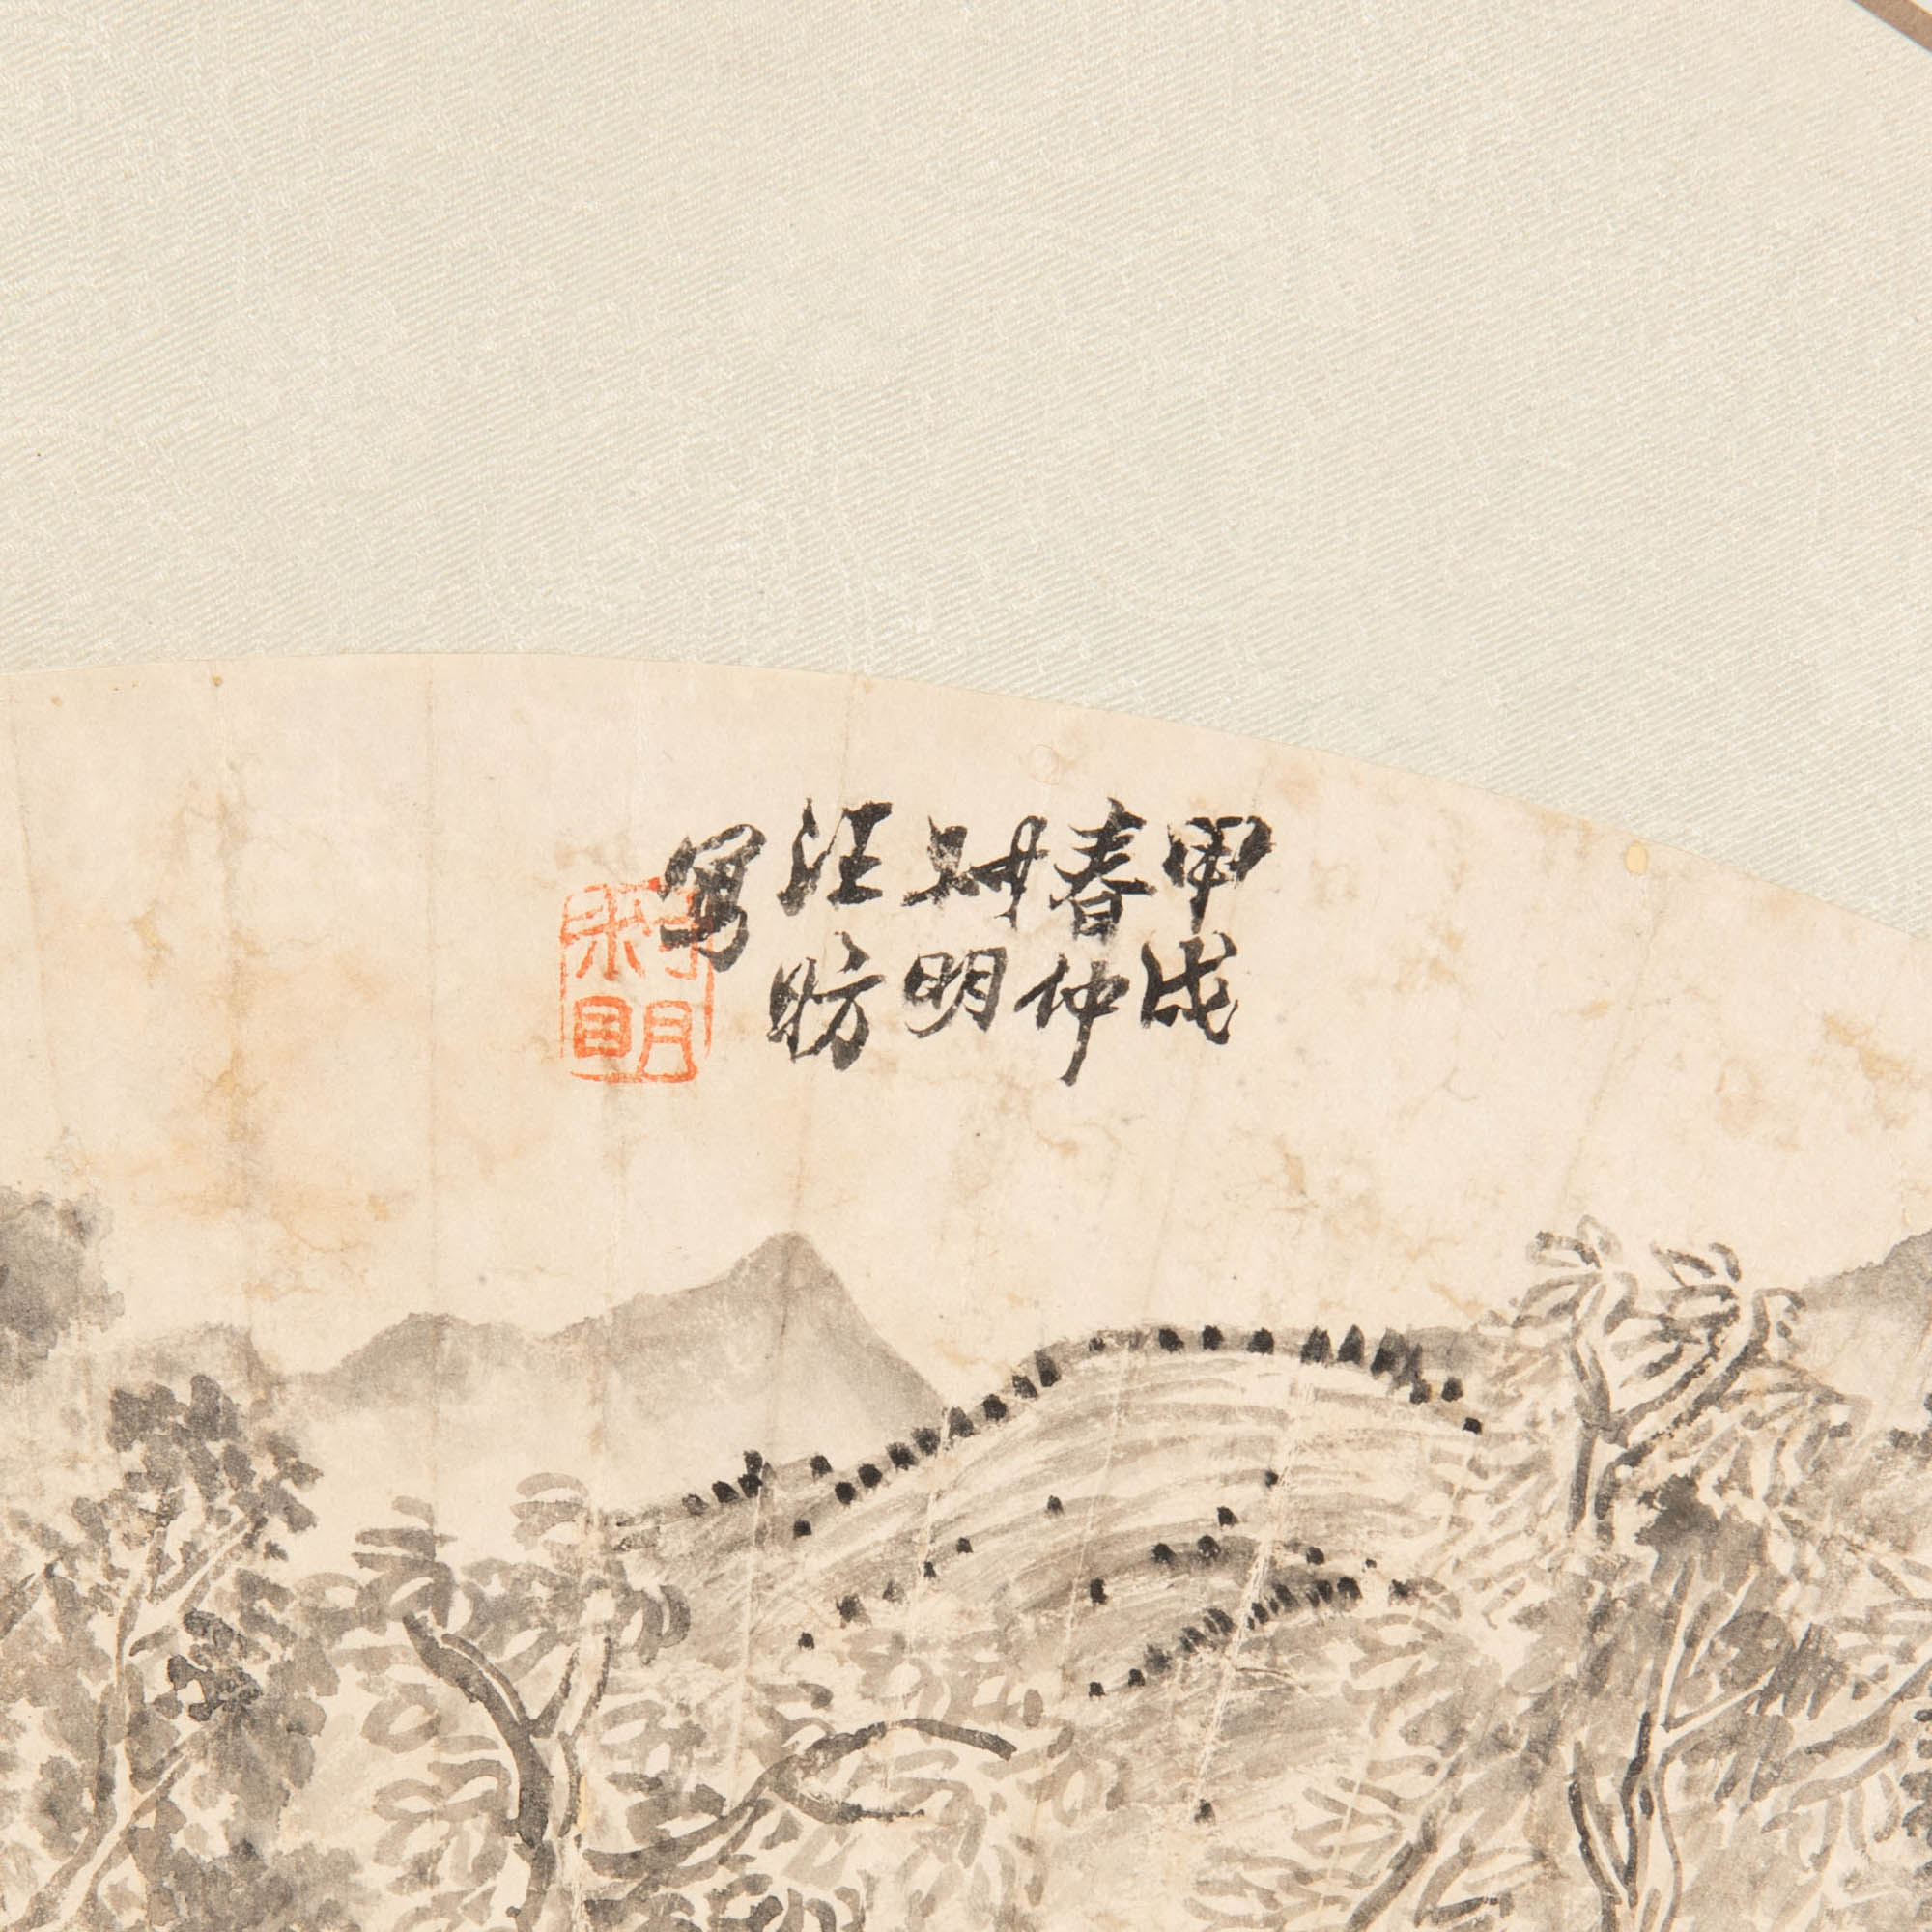 甲戌
春仲
叔明
汪昉
寫
叔明